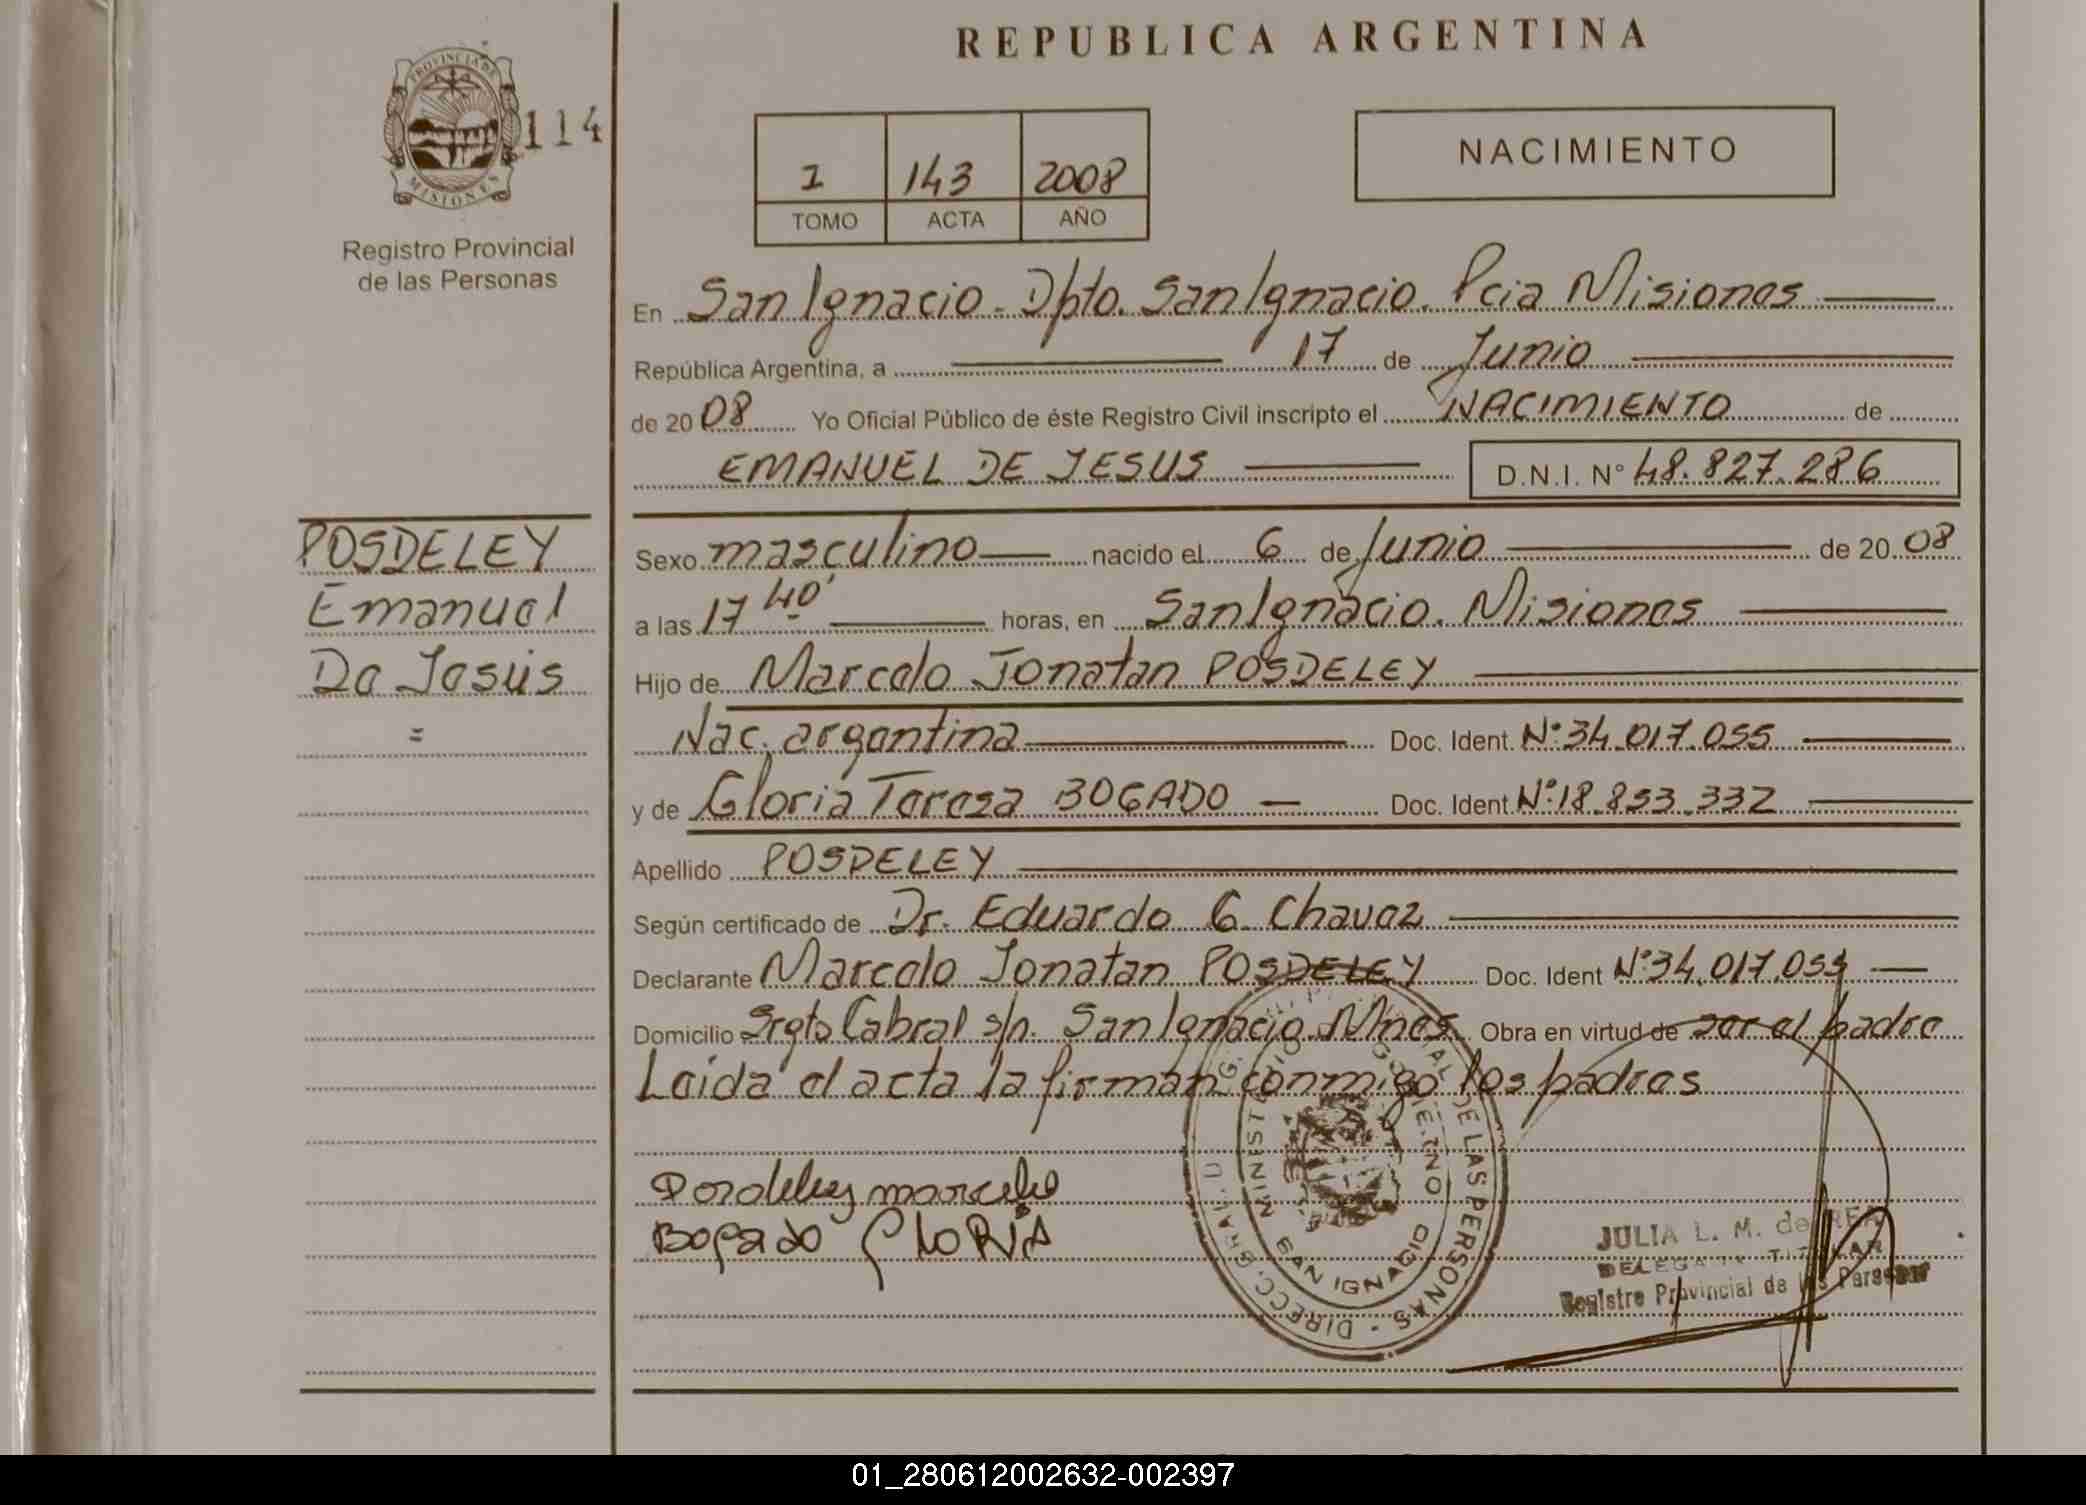 REPUBLICA ARGENTINA
PROVINCIA DE
MISIONES
114
Registro Provincial
de las Personas
1 143 2008
TOMO ACTA AÑO
NACIMIENTO
En San Ignacio - Dpto. San Ignacio. Pcia Misiones
República Argentina, a 17 de Junio
de 2008 Yo Oficial Público de éste Registro Civil inscripto el NACIMIENTO de
EMANUEL DE JESUS D.N.I. N° 48.827.286
POSDELEY
Emanuel
De Jesús
=
Sexo masculino nacido el 6 de Junio de 2008
a las 17 40' horas, en San Ignacio. Misiones
Hijo de Marcelo Jonatan POSDELEY
Nac. argentina Doc. Ident. N° 34.017.055
y de Gloria Teresa BOGADO Doc. Ident. N° 18.853.332
Apellido POSDELEY
Según certificado de Dr. Eduardo G Chavez
Declarante Marcelo Jonatan POSDELEY Doc. Ident N° 34.017.055
Domicilio Srgto Cabral s/n. San Ignacio Mnes. Obra en virtud de ser el padre
Leida el acta la firman conmigo los padres
Posdeley marcelo
Bogado GLORIA
DE LAS PERSONAS - DIRECC. GRAL.
MINISTERIO GOBIERNO
SAN IGNACIO
JULIA L. M. de REA
DELEGADA TITULAR
Registro Provincial de las Personas
01_280612002632-002397